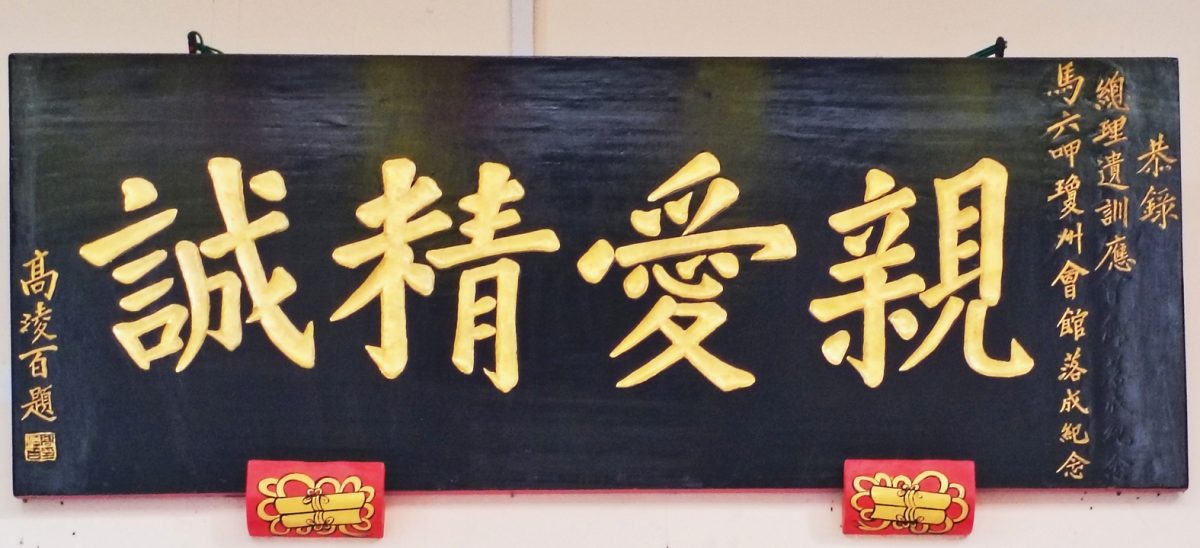 恭錄
總理遺訓應
馬六呷瓊州會館落成紀念
親愛精誠
高凌百題